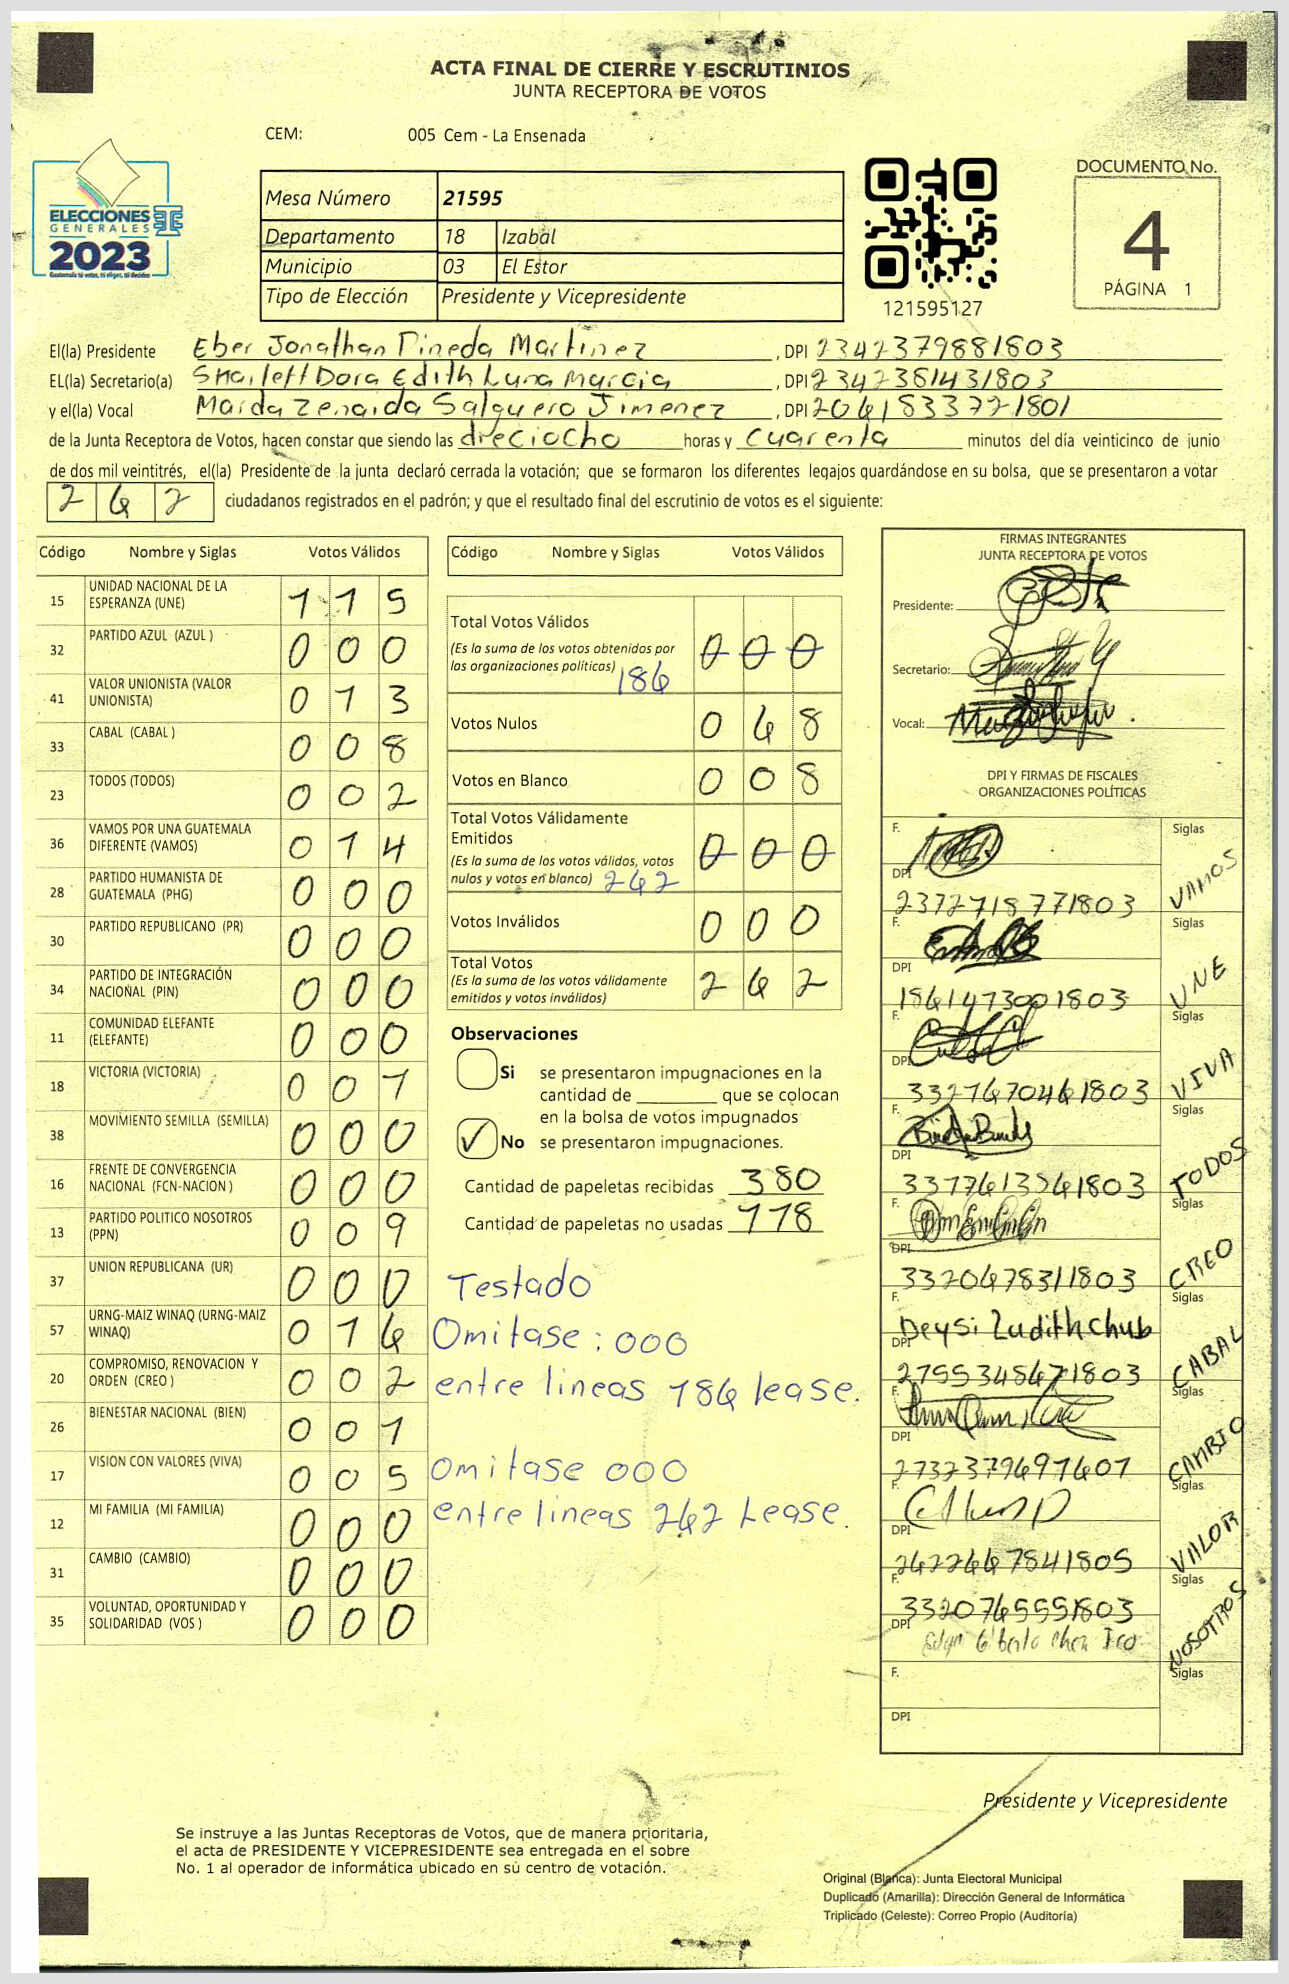 ACTA FINAL DE CIERRE Y ESCRUTINIOS
JUNTA RECEPTORA DE VOTOS
CEM: 005 Cem - La Ensenada
ELECCIONES
GENERALES
2023
Guatemala tú votas, tú eliges, tú decides
Mesa Número 21595
Departamento 18 Izabal
Municipio 03 El Estor
Tipo de Elección Presidente y Vicepresidente
121595127
DOCUMENTO No.
4
PÁGINA 1
El(la) Presidente Eber Jonathan Pineda Martinez , DPI 2342379881803
EL(la) Secretario(a) Sharleff Dora Edith Luna Marcia , DPI 2342381431803
y el(la) Vocal Maida Zenaida Salguero Jimenez , DPI 2061833721801
de la Junta Receptora de Votos, hacen constar que siendo las dieciocho horas y cuarenta minutos del día veinticinco de junio
de dos mil veintitrés, el(la) Presidente de la junta declaró cerrada la votación; que se formaron los diferentes legajos guardándose en su bolsa, que se presentaron a votar
262 ciudadanos registrados en el padrón; y que el resultado final del escrutinio de votos es el siguiente:
Código Nombre y Siglas Votos Válidos
15 UNIDAD NACIONAL DE LA ESPERANZA (UNE) 115
32 PARTIDO AZUL (AZUL ) 000
41 VALOR UNIONISTA (VALOR UNIONISTA) 013
33 CABAL (CABAL ) 008
23 TODOS (TODOS) 002
36 VAMOS POR UNA GUATEMALA DIFERENTE (VAMOS) 014
28 PARTIDO HUMANISTA DE GUATEMALA (PHG) 000
30 PARTIDO REPUBLICANO (PR) 000
34 PARTIDO DE INTEGRACIÓN NACIONAL (PIN) 000
11 COMUNIDAD ELEFANTE (ELEFANTE) 000
18 VICTORIA (VICTORIA) 001
38 MOVIMIENTO SEMILLA (SEMILLA) 000
16 FRENTE DE CONVERGENCIA NACIONAL (FCN-NACION ) 000
13 PARTIDO POLITICO NOSOTROS (PPN) 009
37 UNION REPUBLICANA (UR) 000
57 URNG-MAIZ WINAQ (URNG-MAIZ WINAQ) 016
20 COMPROMISO, RENOVACION Y ORDEN (CREO ) 002
26 BIENESTAR NACIONAL (BIEN) 001
17 VISION CON VALORES (VIVA) 005
12 MI FAMILIA (MI FAMILIA) 000
31 CAMBIO (CAMBIO) 000
35 VOLUNTAD, OPORTUNIDAD Y SOLIDARIDAD (VOS ) 000
Código Nombre y Siglas Votos Válidos
Total Votos Válidos 000
(Es la suma de los votos obtenidos por
las organizaciones políticas) 186
Votos Nulos 068
Votos en Blanco 008
Total Votos Válidamente
Emitidos 000
(Es la suma de los votos válidos, votos
nulos y votos en blanco) 262
Votos Inválidos 000
Total Votos 262
(Es la suma de los votos válidamente
emitidos y votos inválidos)
Observaciones
Si se presentaron impugnaciones en la
cantidad de ________ que se colocan
en la bolsa de votos impugnados
✓ No se presentaron impugnaciones.
Cantidad de papeletas recibidas 380
Cantidad de papeletas no usadas 118
Testado
Omitase : 000
entre lineas 186 lease.
Omitase 000
entre lineas 262 Lease.
FIRMAS INTEGRANTES
JUNTA RECEPTORA DE VOTOS
Presidente:
Secretario:
Vocal:
DPI Y FIRMAS DE FISCALES
ORGANIZACIONES POLÍTICAS
F. Siglas
DPI 2372718771803 VAMOS
F. Siglas
DPI 1861473001803 UNE
F. Siglas
DPI 3327670461803 VIVA
F. Siglas
DPI TODOS
F. Siglas
DPI 3320678311803 CREO
F. Deysi Ludith Chub Siglas
DPI 2755348671803 CABAL
F. Siglas
DPI 2732379691601 CAMBIO
F. Siglas
DPI 2622667841805 VALOR
F. 3320765551803 Siglas
DPI NOSOTROS
F. Siglas
DPI
Presidente y Vicepresidente
Se instruye a las Juntas Receptoras de Votos, que de manera prioritaria,
el acta de PRESIDENTE Y VICEPRESIDENTE sea entregada en el sobre
No. 1 al operador de informática ubicado en su centro de votación.
Original (Blanca): Junta Electoral Municipal
Duplicado (Amarilla): Dirección General de Informática
Triplicado (Celeste): Correo Propio (Auditoría)